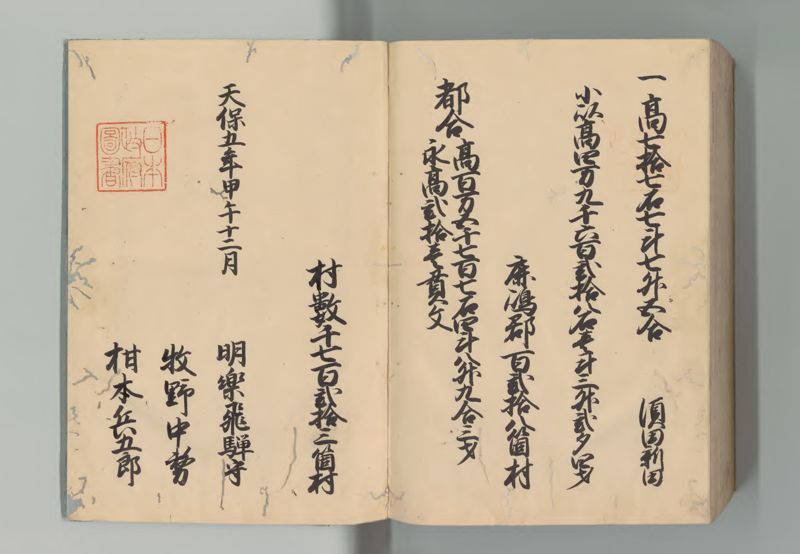 一高七拾七石七斗七升五合
須田新田
小以高四万九千六百弐拾八石壱斗三升弐夕四才
鹿嶋郡百弐拾八箇村
都合
高百万五千七百七石四斗八升九合三才
永高弐拾壱貫文
村数千七百弐拾三箇村
天保五年甲午十二月
明楽飛騨守
牧野中務
柑本兵五郎
日本
政府
圖書